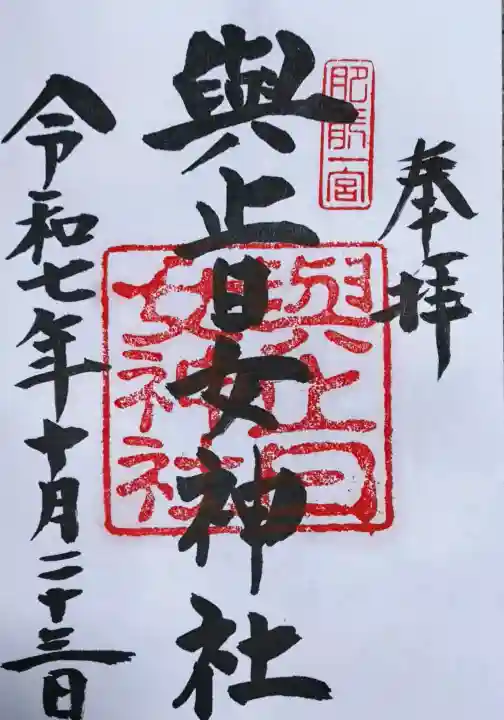 奉拝
肥前一宮
與止日女神社
與止日
女神社
令和七年十月二十三日